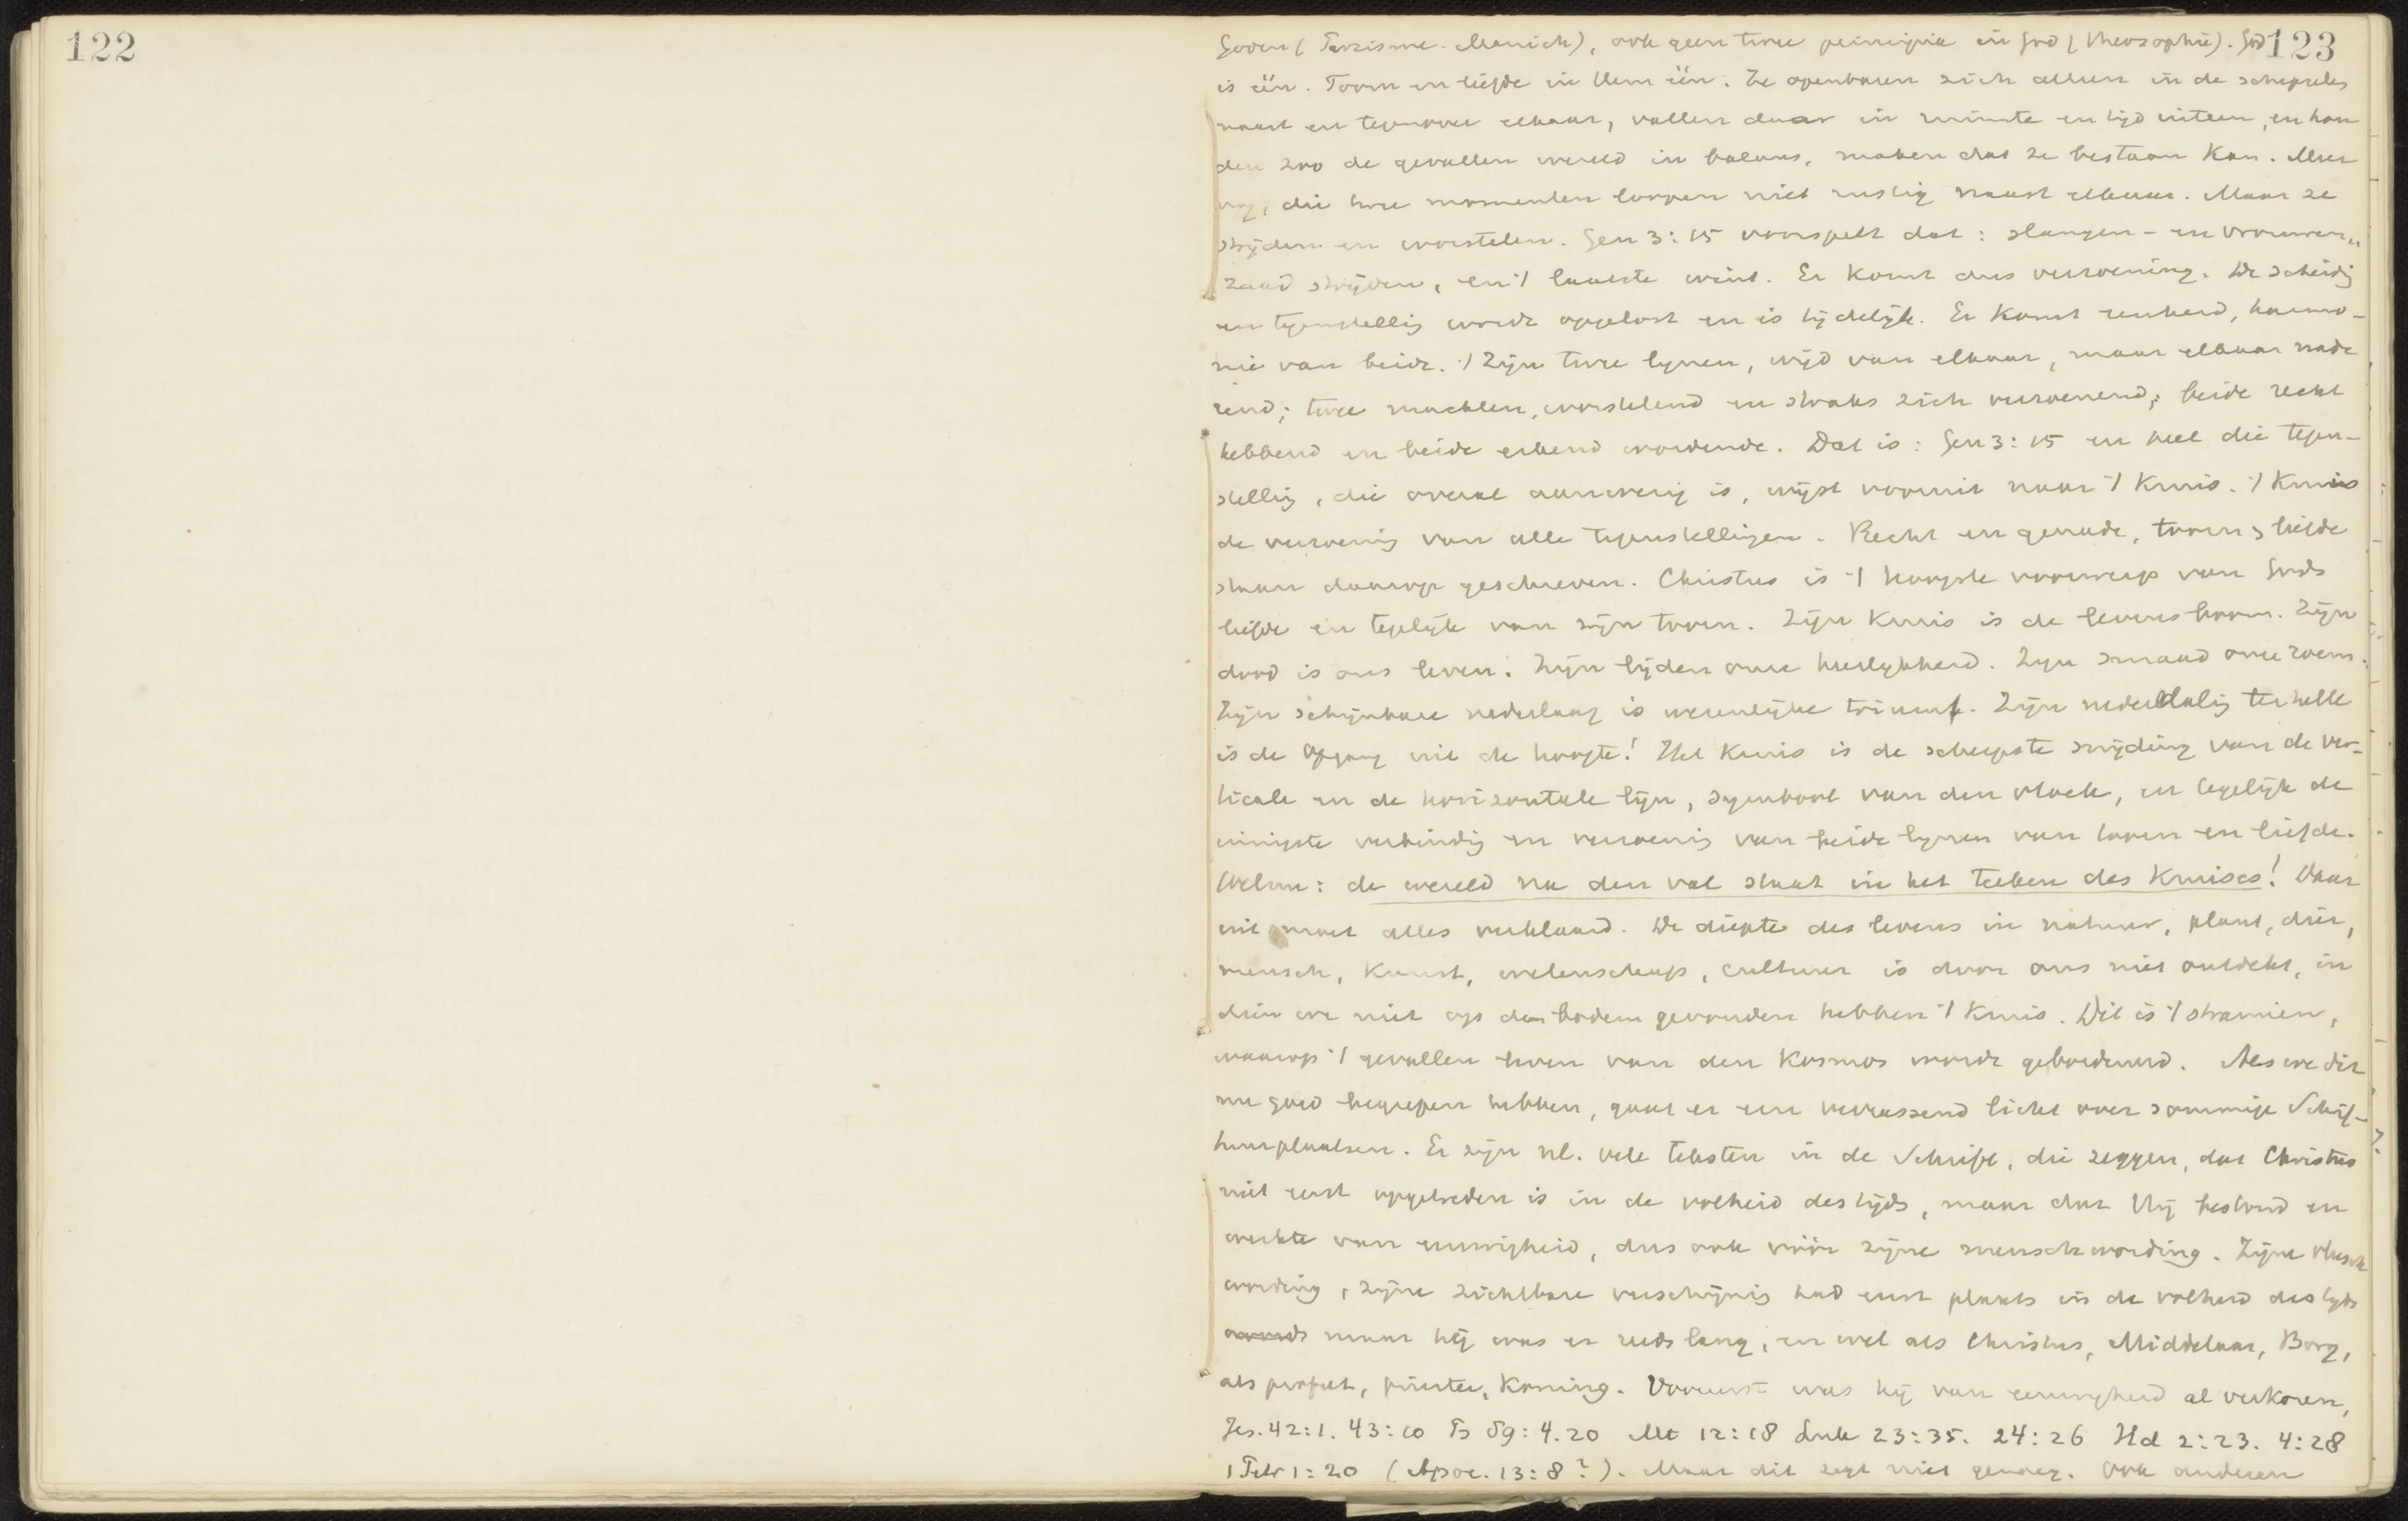 122
123
Goden (Parzisme. Manich), ook geen twee principia in God (theosophie). God
is één. Toorn en liefde in Hem één. Ze openbaren zich alleen in de schepselen
naast en tegenover elkaar, vallen daar in ruimte en tijd uiteen, en hou
den zoo de gevallen wereld in balans, maken dat ze bestaan kan. Meer
nog, die twee momenten loopen niet rustig naast elkaar. Maar ze
strijden en worstelen. Gen 3:15 voorspelt dat: slangen- en vrouwen„
zaad strijden, en 't laatste wint. Er komt dus verzoening. De scheidg
en tegenstellig wordt opgelost en is tijdelijk. Er komt eenheid, harmo-
nie van beide. 't Zijn twee lijnen, wijd van elkaar, maar elkaar nade
rend; twee machten, worstelend en straks zich verzoenend; beide recht
hebbend en beide erkend wordende. Dat is: Gen 3:15 en heel die tegen-
stellig, die overal aanwezig is, wijst vooruit naar 't Kruis. 't Kruis
de verzoenig van alle tegenstellingen. Recht en genade, toorn & liefde
staan daarop geschreven. Christus is 't hoogste voorwerp van Gods
liefde en tegelijk van zijn toorn. Zijn Kruis is de levensboom. Zijn
dood is ons leven. Zijn lijden onze heerlijkheid. Zijn smaad onze roem.
Zijn schijnbare nederlaag is wezenlijke triumf. Zijn nederdalig ter helle
is de opgang uit de hoogte! Het Kruis is de scherpste snijding van de ver-
ticale en de horizontale lijn, symbool van den vloek, en tegelijk de
innigste verbindig en verzoenig van beide lijnen van toorn en liefde.
Welnu: de wereld na den val staat in het teeken des Kruises! Daar
uit moet alles verklaard. De diepte des levens in natuur, plant, dier,
mensch, Kunst, wetenschap, cultuur is door ons niet ontdekt, in
dien we niet op den bodem gevonden hebben 't Kruis. Dit is 't stramien,
waarop 't gevallen leven van den Kosmos wordt geborduurd. Als we dit
nu goed begrepen hebben, gaat er een verrassend licht over sommige Schrif-
tuurplaatsen. Er zijn nl. vele teksten in de Schrift, die zeggen, dat Christus
niet eerst opgetreden is in de volheid des tijds, maar dat Hij bestond en
werkte van eeuwigheid, dus ook vóór zijne menschwording. Zijne vleesch
wording, zijne zichtbare verschijnig had eerst plaats in de volheid des tijds
maar hij was er reeds lang, en wel als Christus, Middelaar, Borg,
als profeet, priester, Koning. Vooreerst was hij van eeuwigheid al verkoren,
Jes. 42:1. 43:10 Ps 89:4.20 Mt 12:18 Luk 23:35. 24:26 Hd 2:23. 4:28
1 Petr 1:20 (Apoc. 13:8?). Maar dit zegt niet genoeg. Ook anderen